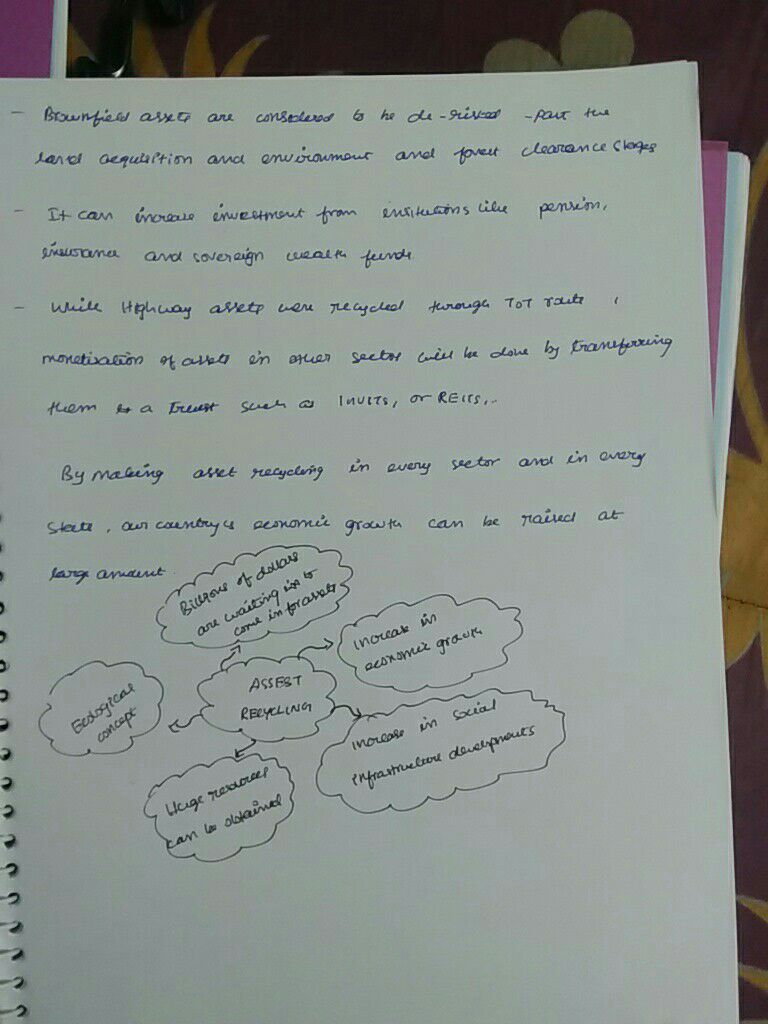 - Brownfield assets are considered to be de-risked - past the
land acquisition and environment and forest clearance stages
- It can increase investment from institutions like pension,
insurance and sovereign wealth funds.
- While Highway assets were recycled through TOT route,
monetisation of assets in other sector will be done by transferring
them to a Trust such as INVITS, or REITS,..
By making asset recycling in every sector and in every
state, our country's economic growth can be raised at
large amount.
Billions of dollars
are waiting to
come in for assets
Increase in
economic growth
ASSEST
RECYCLING
Ecological
concept
Increase in social
infrastructure developments
Huge resources
can be obtained